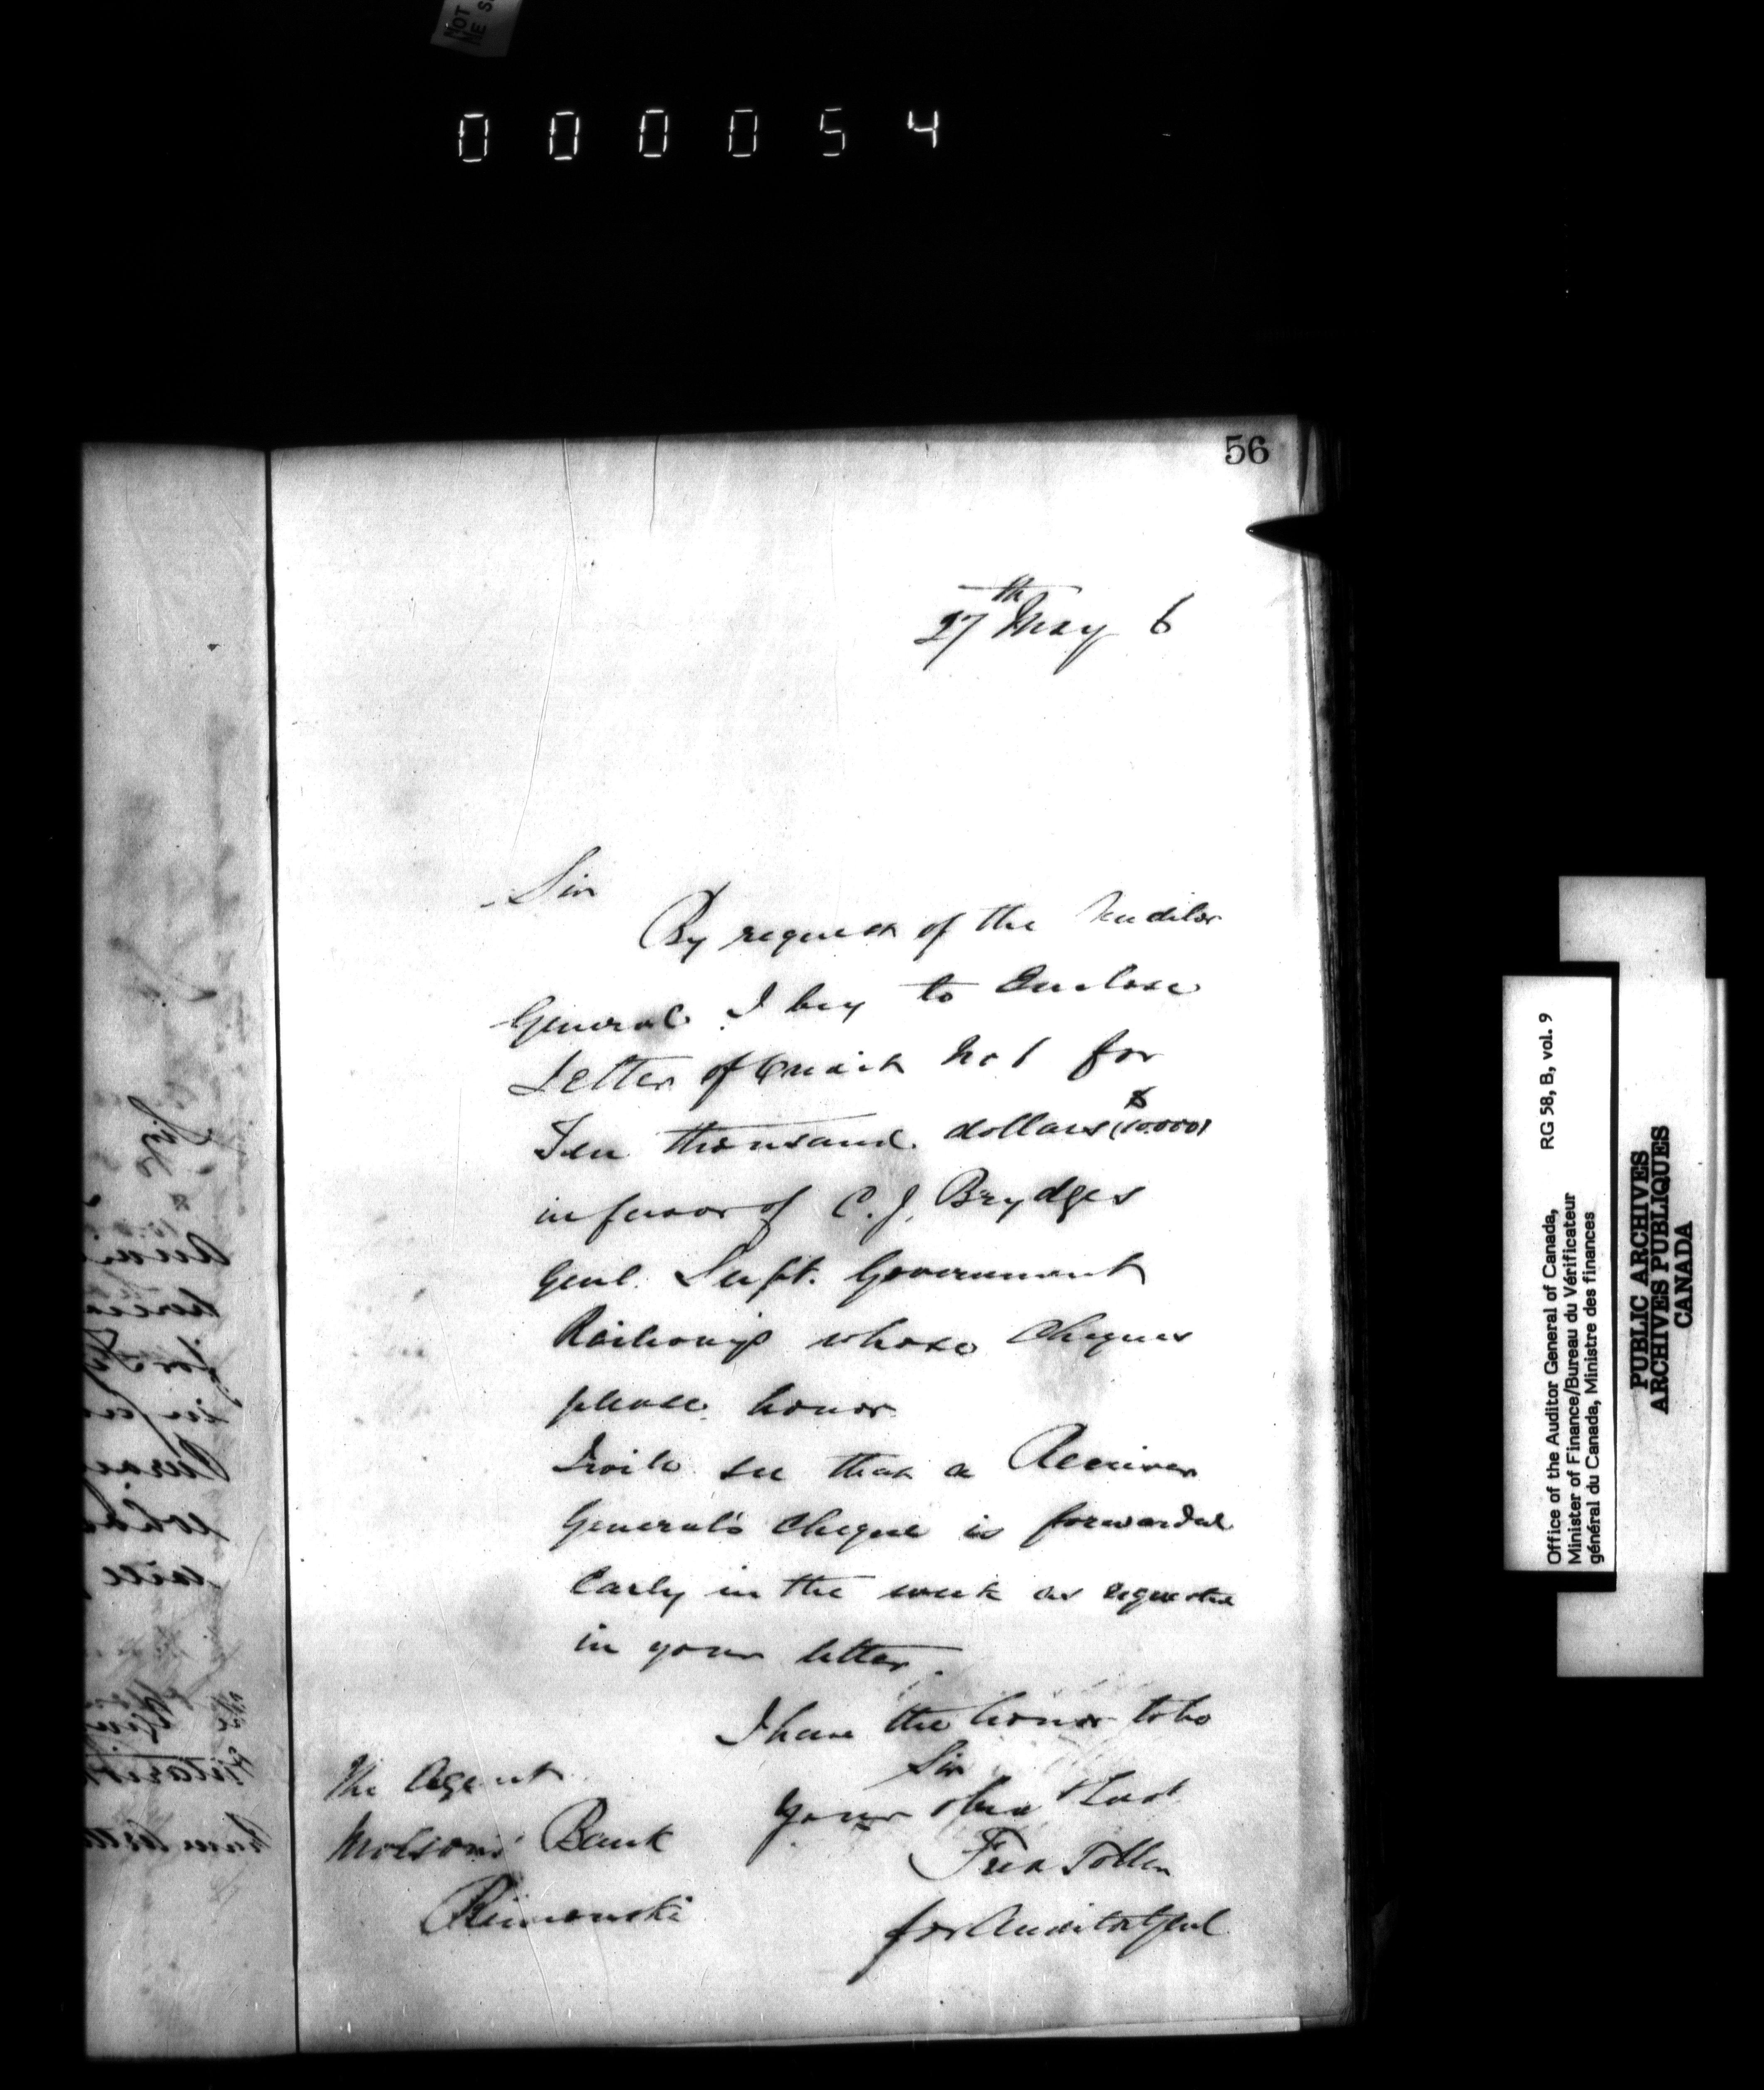 NOT
ME
000054
56
27th May 6
Sir
By request of the Auditor
General I beg to enclose
Letter of Credit No 1 for
Ten thousand dollars ($10.000)
in favor of C. J. Brydges
Genl. Supt. Government
Railways whose cheques
please honor
I will see that a Receiver
General's cheque is forwarded
early in the week as requested
in your letter.
I have the honor to be
Sir
Your obed Servt
Fred Toller
for Auditor Genl
The Agent
Molsons' Bank
Rimouski
Office of the Auditor General of Canada, RG 58, B, vol. 9
Minister of Finance/Bureau du Vérificateur
général du Canada, Ministre des finances
PUBLIC ARCHIVES
ARCHIVES PUBLIQUES
CANADA